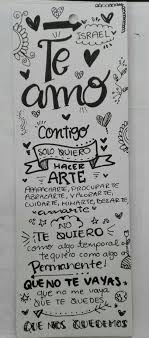 ISRAEL
Te
amo
Contigo
SOLO QUIERO
HACER
ARTE
AMANCIARTE, PROCURARTE
ABRAZARTE, VALORARTE,
CUIDARTE, MIMARTE, DESEARTE
amarte
NO
TE QUIERO
como algo temporal
te quiero como algo
Permanente!
QUE NO TE VAYAS
que no me vaya
QUE TE QUEDES
QUE NOS QUEDEMOS